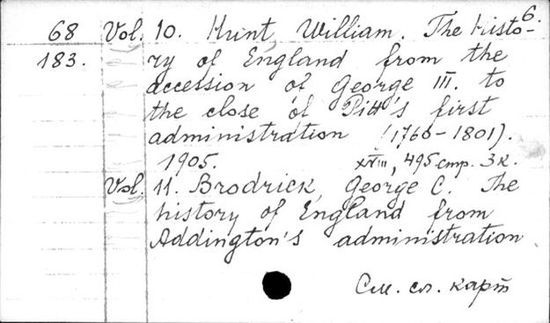 6.
68 Vol. 10. Hunt, William. The histo-
183. ry of England from the
accession of George III. to
the close of Pitt's first
administration (1760-1801).
1905. XVIII, 495 стр. 3 к.
Vol. 11. Brodrick, George C. The
history of England from
Addington's administration
См. сл. карт